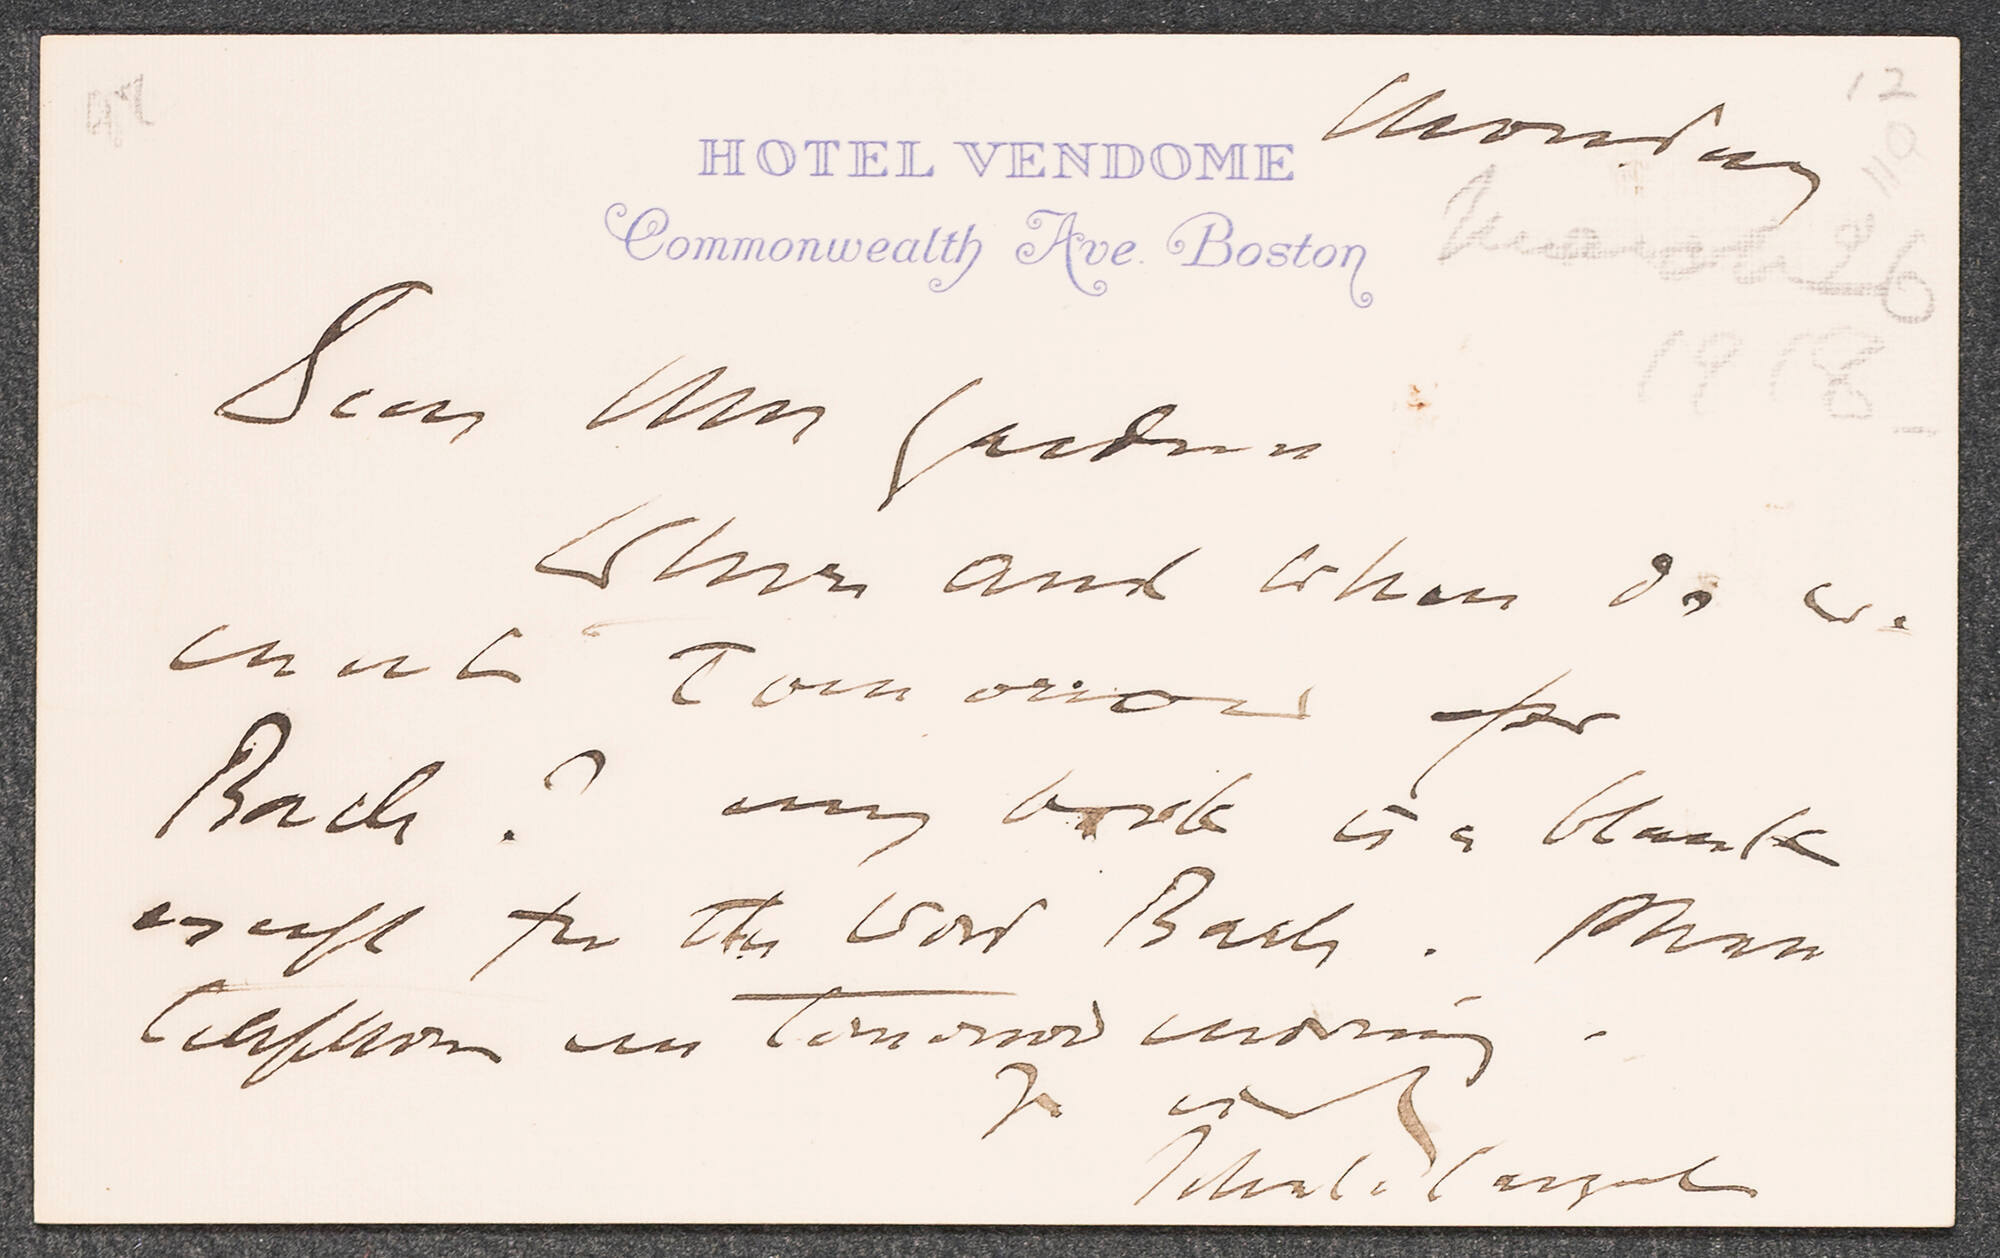 12
110
Monday
HOTEL VENDOME
Commonwealth Ave. Boston
March 26
1918
Dear Mrs Gardner
Where and when do we
meet Tomorrow for
Bach? my book is a blank
except for the word Bach. Please
telephone me tomorrow morning.
Yrs
John S. Sargent